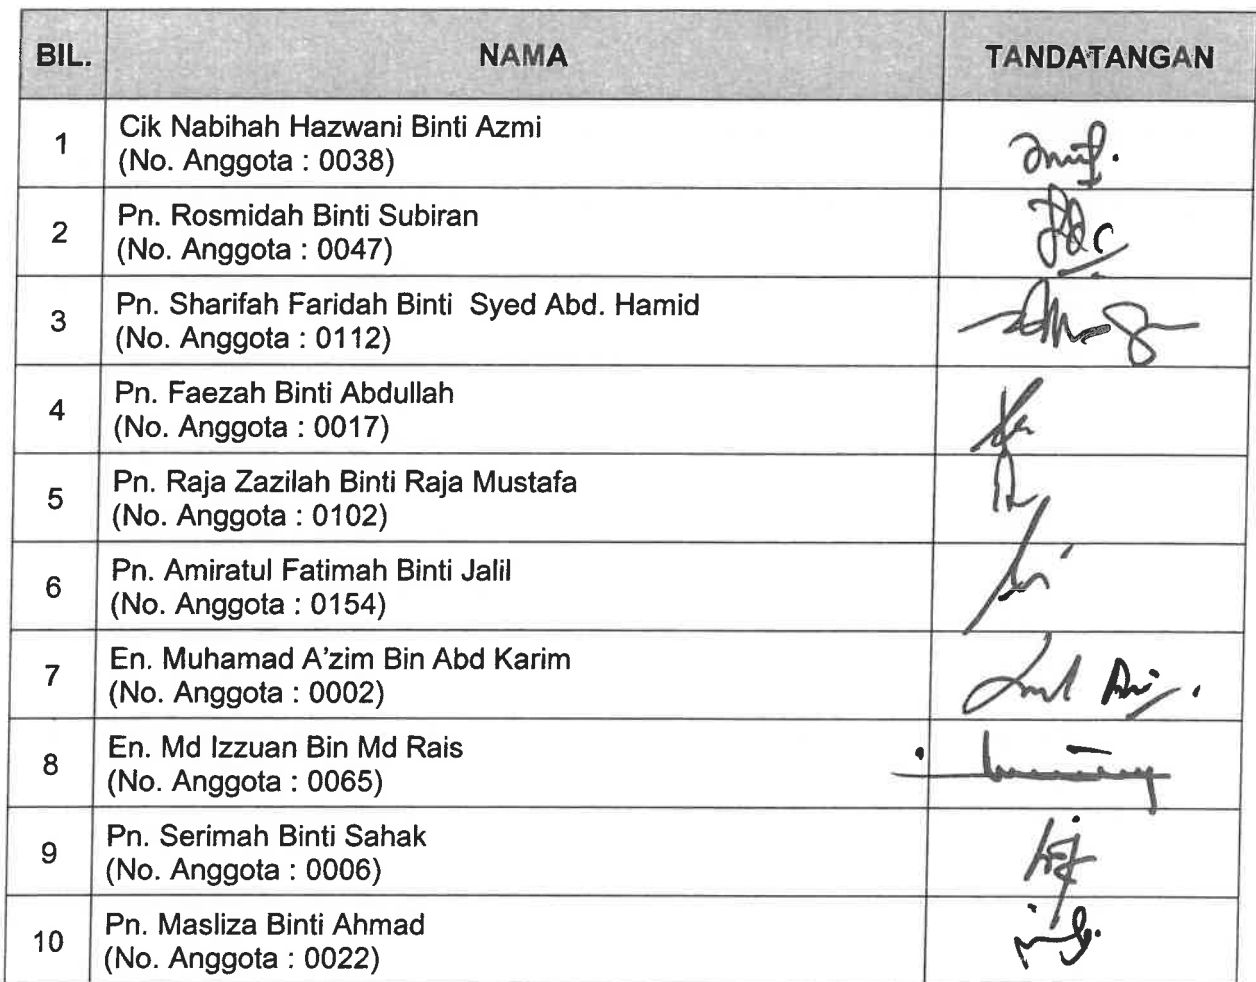 BIL. NAMA TANDATANGAN
1 Cik Nabihah Hazwani Binti Azmi
(No. Anggota : 0038)
2 Pn. Rosmidah Binti Subiran
(No. Anggota : 0047)
3 Pn. Sharifah Faridah Binti Syed Abd. Hamid
(No. Anggota : 0112)
4 Pn. Faezah Binti Abdullah
(No. Anggota : 0017)
5 Pn. Raja Zazilah Binti Raja Mustafa
(No. Anggota : 0102)
6 Pn. Amiratul Fatimah Binti Jalil
(No. Anggota : 0154)
7 En. Muhamad A'zim Bin Abd Karim
(No. Anggota : 0002)
8 En. Md Izzuan Bin Md Rais
(No. Anggota : 0065)
9 Pn. Serimah Binti Sahak
(No. Anggota : 0006)
10 Pn. Masliza Binti Ahmad
(No. Anggota : 0022)